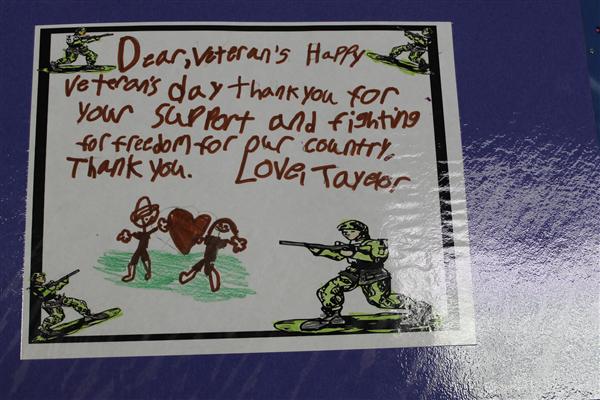 Dear, Veteran's Happy
Veteran's day thank you for
your support and fighting
for freedom for our country.
Thank you. Love, Tayelor